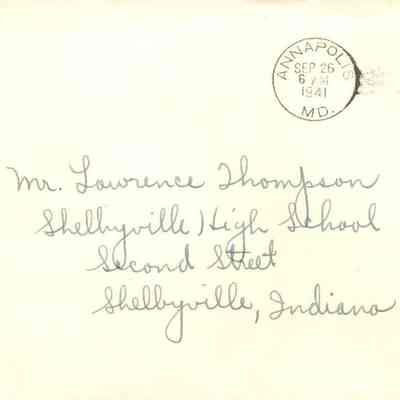 ANNAPOLIS
SEP 26
6 PM
1941
MD.
Mr. Lawrence Thompson
Shelbyville High School
Second Street
Shelbyville, Indiana